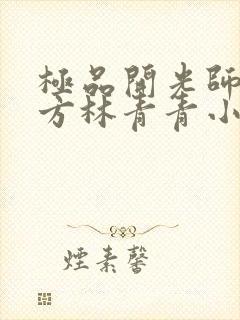 極品開光師
方林青青小
煙素馨